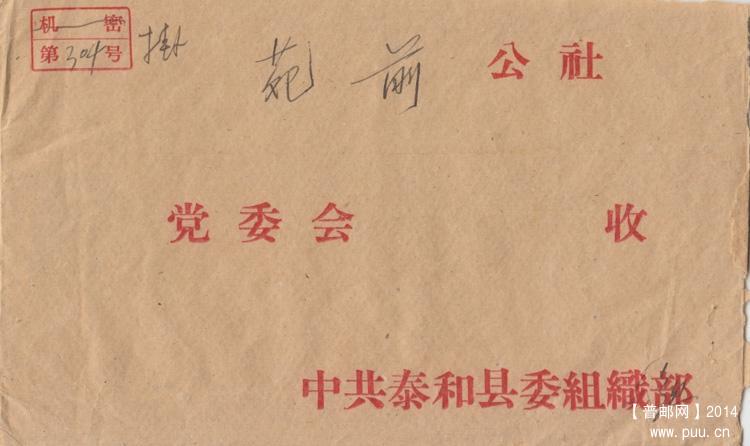 机密
第304号 掛
苑前 公社
党委会 收
中共泰和县委組織部
【普邮网】2014
www.puu.cn